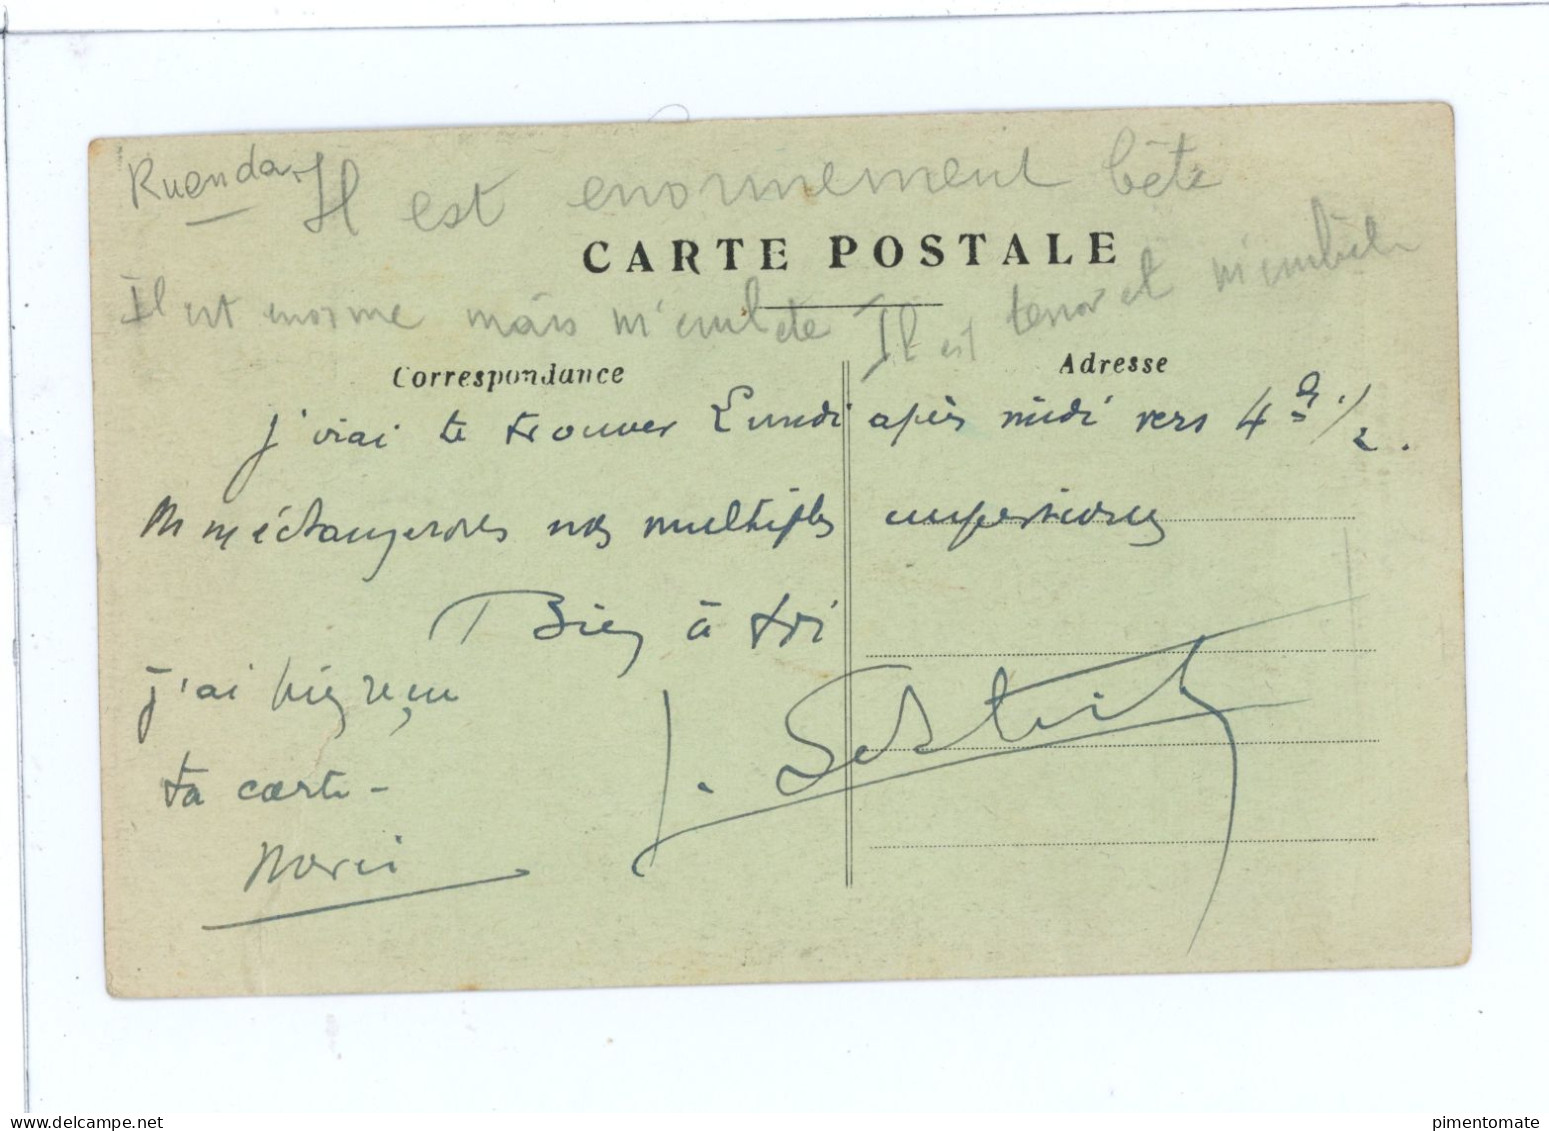 Ruenda. Il est enormement bête
CARTE POSTALE
Il est enorme mais m'embete Il est tenor et m'embete
Correspondance
Adresse
j'irai te trouver Lundi après midi vers 4 h 1/2.
échangerons nos multiples impressions
Bien à toi
j'ai bien reçu
ta carte -
Merci
www.delcampe.net
pimentomate